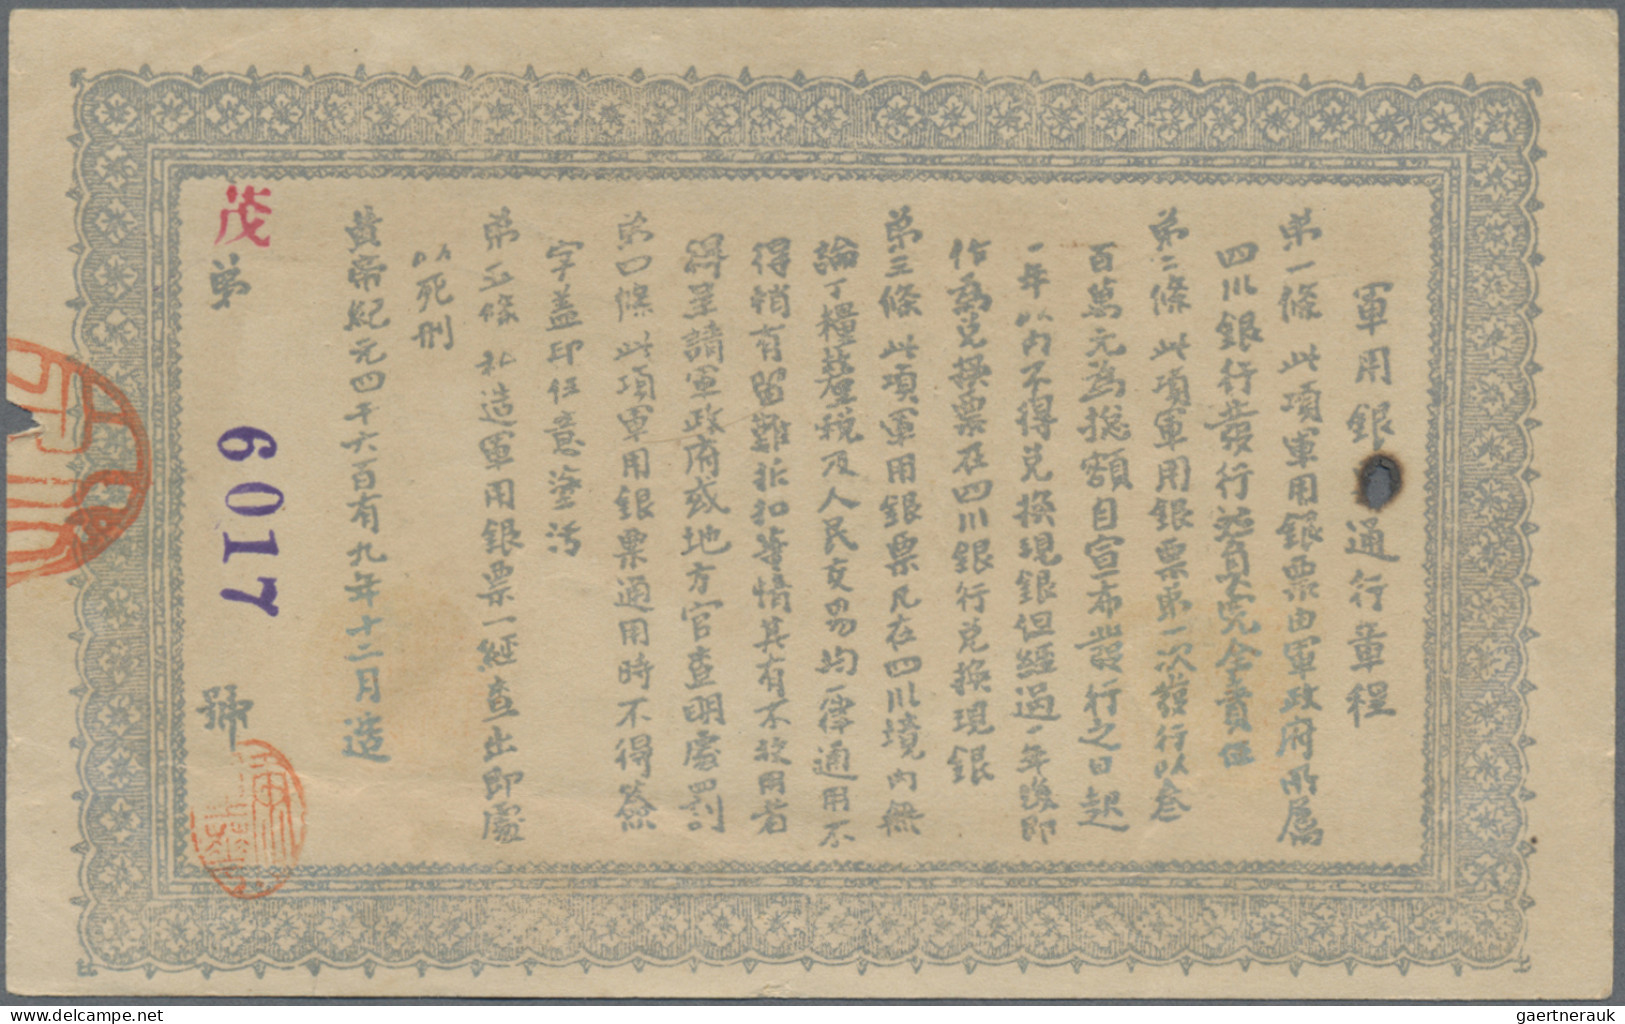 軍用銀 通行章程
第一條 此項軍用銀票由軍政府所屬
四川銀行發行並負完全責任
第二條 此項軍用銀票第一次發行以叁
百萬元為總額自宣布發行之日起
一年以內不得兌換現銀但經過一年後即
作為兌換票在四川銀行兌換現銀
第三條 此項軍用銀票凡在四川境內無
論丁糧釐稅及人民交易均一律通用不
得稍有留難折扣等情其有不敘用者
得呈請軍政府或地方官查明處罰
第四條 此項軍用銀票通用時不得簽
字蓋印任意塗污
第五條 私造軍用銀票一經查出即處
以死刑
黃帝紀元四千六百有九年十二月造
茂第 6017 號
gaertnerauk